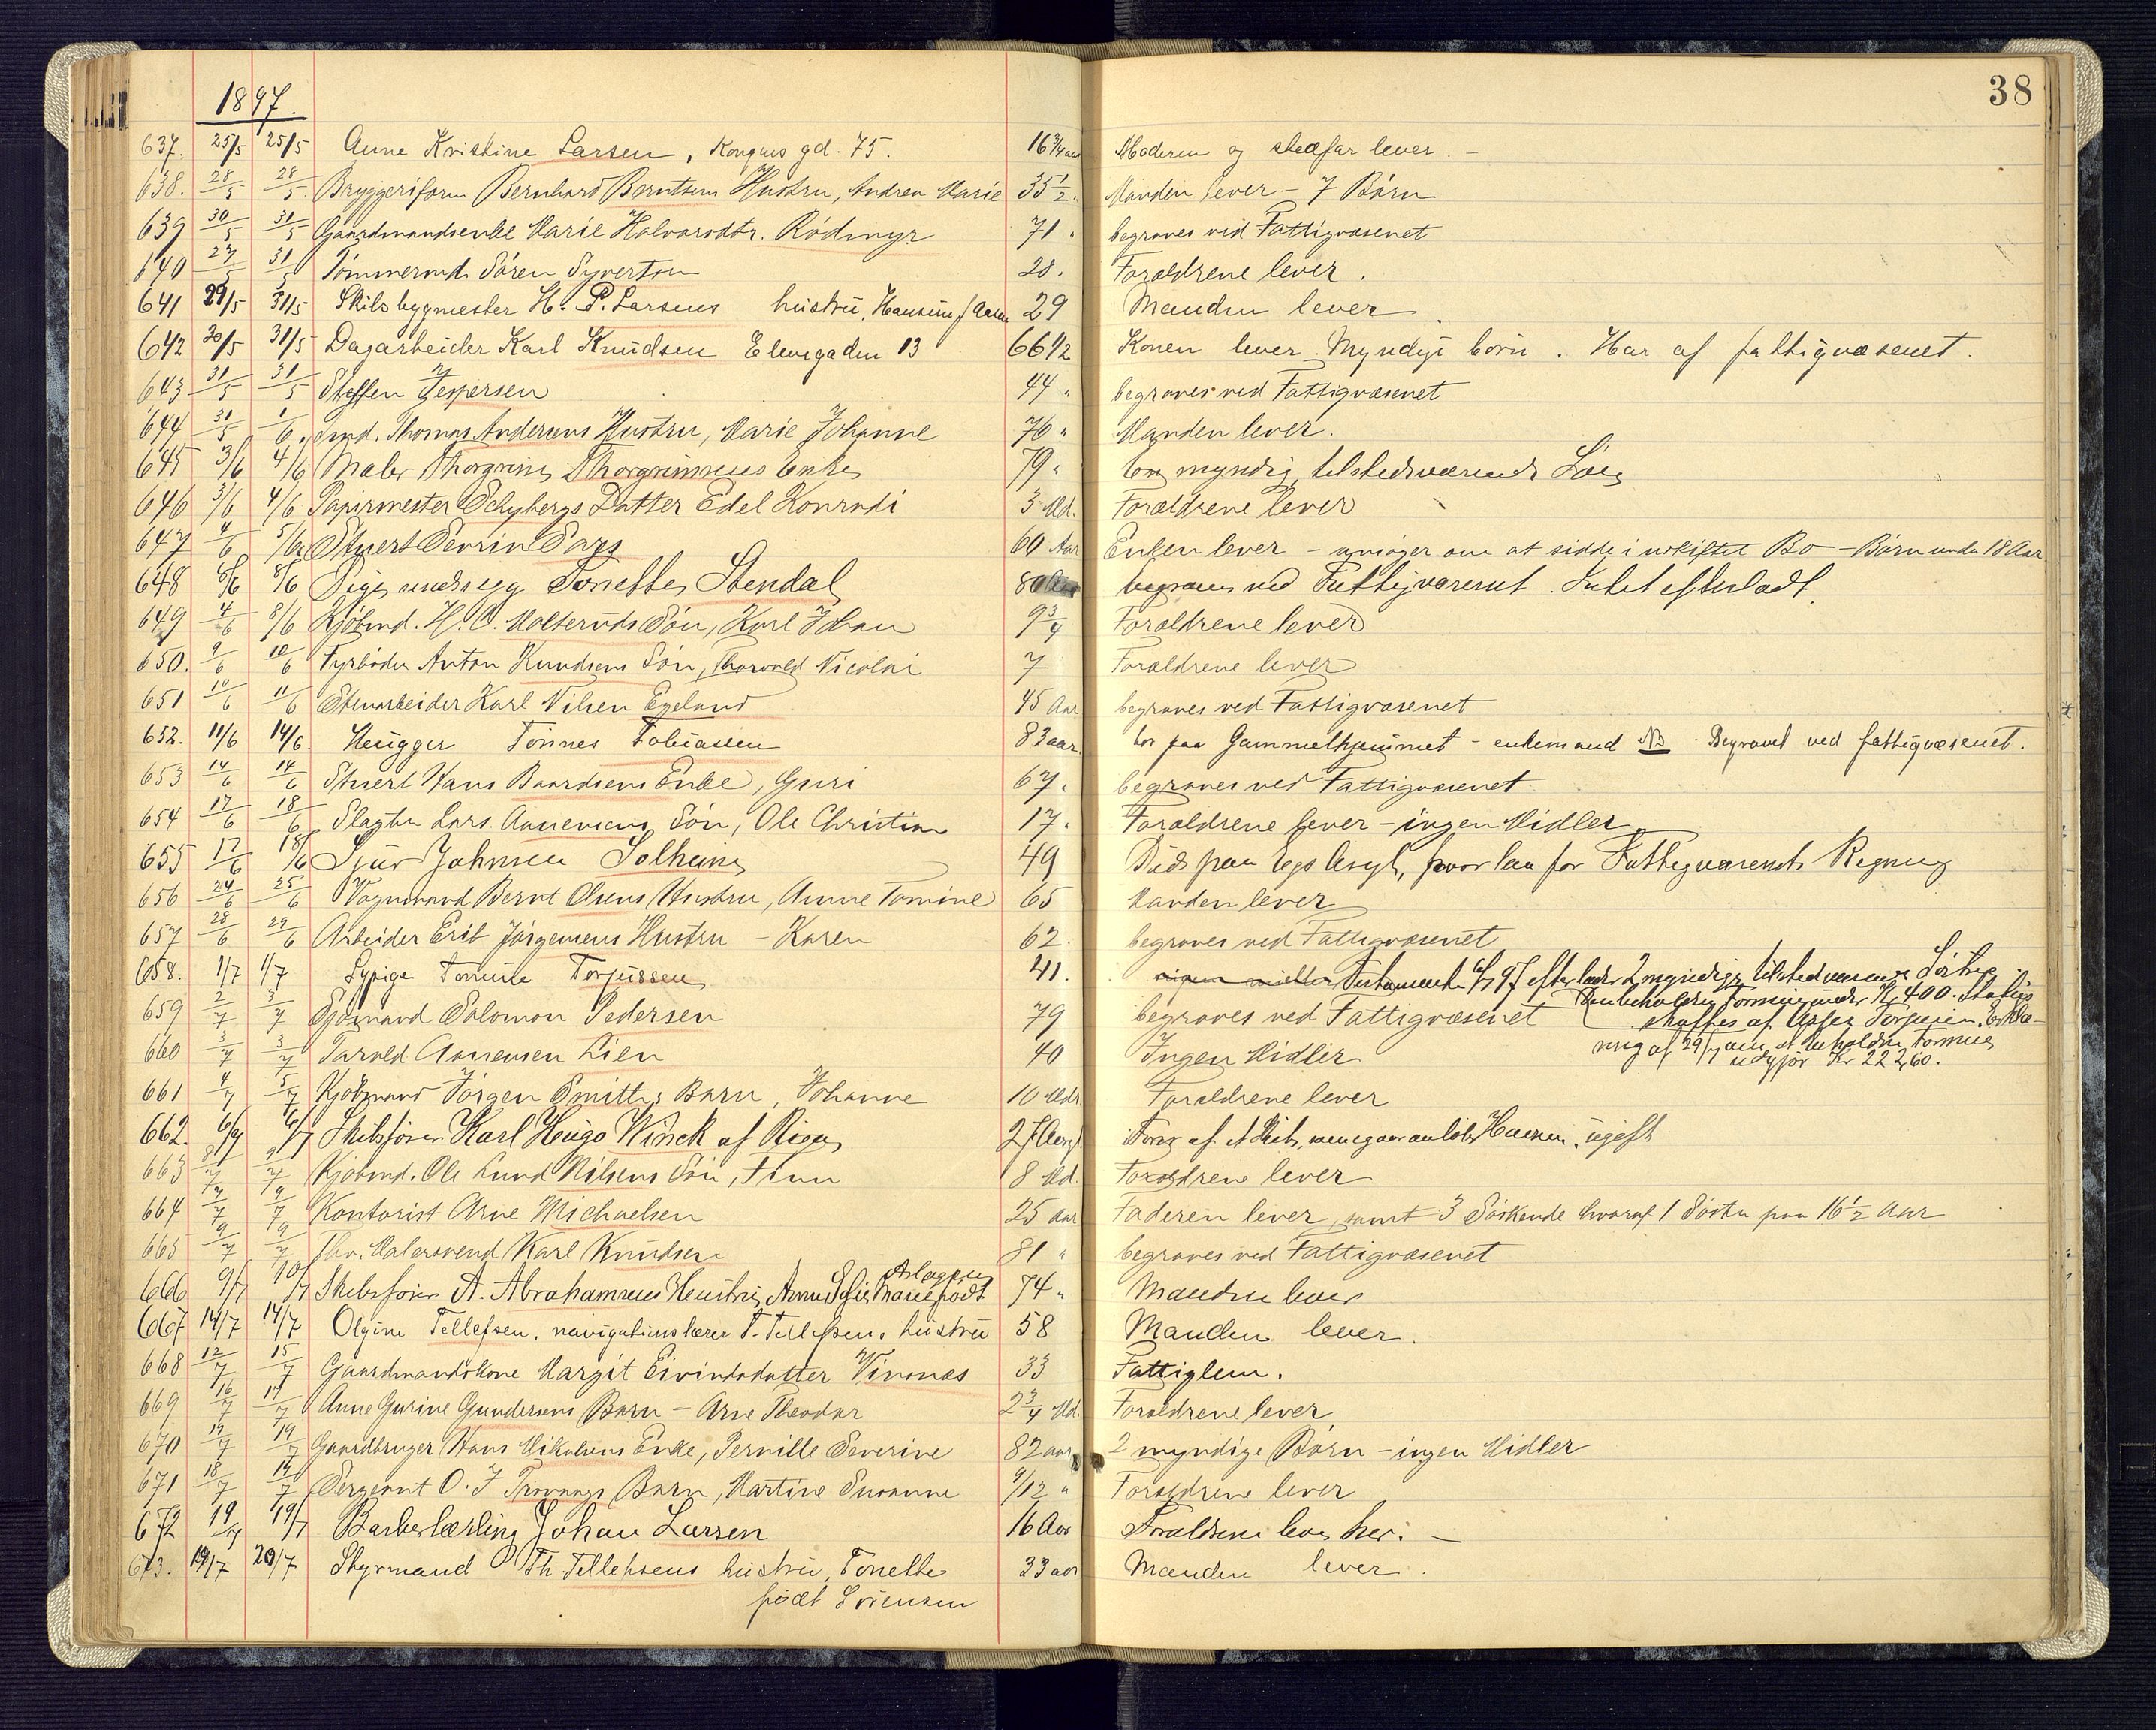 38
1897.
637. 25/5 25/5 Anne Kristine Larsen, Kongens gd. 75. 16 3/4 aar Moderen og stedfar lever. -
638. 28/5 28/5 Bryggeriform Bernhard Berntsens Hustru, Andrea Marie 35 1/2 Manden lever - 7 Börn
639 30/5 31/5 Gaardmandsenke Marie Halvorsdtr. Rödmyr 71 " begraves ved Fattigvæsenet
640 27/5 31/5 Tömmermd. Sören Syvertsen 28. Forældrene lever.
641 29/5 31/5 Skibsbygmester H. P. Larsens hustru, Hansine f Aasen 29 Manden lever.
642 30/5 31/5 Dagarbeider Karl Knudsen Elvegaden 13 66 1/2 Konen lever. Myndige børn. Har af fattigvæsenet.
643 31/5 31/5 Steffen Jespersen 44 " begraves ved Fattigvæsenet
644 31/5 1/6 md. Thomas Andersens Hustru, Marie Johanne 76 " Manden lever.
645 3/6 4/6 Maler Thorgrim Thorgrimsens Enke 79 " En myndig, tilstedeværende Søn
646 3/6 4/6 Papirmester Schybergs Datter Edel Konradi 3 Md. Forældrene lever
647 4/6 5/6 Stuert Severin Sars 60 Aar Enken lever - ansöger om at sidde i uskiftet Bo - Börn under 18 Aar
648 8/6 8/6 Pige Tonette Stendal 80 begraves ved Fattigvæsenet. Intet efterladt.
649 4/6 8/6 Kjöbmd. H. C. Malteruds Sön, Karl Johan 9 3/4 Forældrene lever
650. 9/6 10/6 Fyrböder Anton Knudsens Sön, Thorvald Nicolai 7 Forældrene lever
651 10/6 11/6 Stenarbeider Karl Nilsen Egeland 45 Aar begraves ved Fattigvæsenet
652. 11/6 14/6. Hugger Tönnes Tobiassen 83 aar. bor paa Gammelhjemmet - enkemand NB Begravet ved fattigvæsenet.
653 14/6 14/6 Stuert Hans Baardsens Enke, Guri 67 " begraves ved Fattigvæsenet
654 17/6 18/6 Slagter Lars Aanensens Sön, Ole Christian 17 " Forældrene lever - ingen Midler
655 17/6 18/6 Sjur Johnsen Solheim 49 Död paa Egs Asyl, hvor laa for Fattigvæsenets Regning
656 24/6 25/6 Vognmand Bernt Olsens Hustru, Anne Tomine 65 Manden lever
657 28/6 29/6 Arbeider Erik Jörgensens Hustru - Karen 62. begraves ved Fattigvæsenet
658. 1/7 1/7 Sypige Tomine Torjussen 41. ingen midler Testamente efterlader 2 myndige, tilstedeværende Söstre
659 2/7 3/7 Sjömand Salomon Pedersen 79 begraves ved Fattigvæsenet
Formue under Kr 400.
skaffes af
660 3/7 3/7 Tarald Aanensen Lien 40 Ingen Midler
ring af 29/7 om at beholdne Formue
udgjör Kr 22260.
661 4/7 5/7 Kjöbmand Jörgen Smitths Barn, Johanne 10 Mdr. Forældrene lever
662. 6/7 6/7 Skibsfører Karl Hugo Winck af Riga, 27 Aar Fører af et Skib, Havnen. ugift
663 8/7 9/7 Kjöbmd. Ole Lund Nilsens Sön, Finn 8 Md. Forældrene lever
664 7/7 9/7 Kontorist Arne Michaelsen 25 aar Faderen lever, samt 3 Söskende hvoraf 1 Söster paa 16 1/2 Aar
665 9/7 9/7 fhv. Malersvend Karl Knudsen 81 " begraves ved Fattigvæsenet
666 9/7 10/7 Skibsfører A. Abrahamsens Hustru, Anne Sofie Marie født Aslagsen 74 " Manden lever
667 14/7 14/7 Olgine Tellefsen, navigationslærer T. Tellefsens hustru 58 Manden lever.
668 12/7 15/7 Gaardmandskone Margit Eivindsdatter Vinnæs 33 Fattiglem.
669 16/7 17/7 Anne Gurine Gundersens Barn - Arne Theodor 2 3/4 Md. Forældrene lever
670 17/7 19/7 Gaardbruger Hans Mikalsens Enke, Pernille Severine 82 aar 2 myndige Börn - ingen Midler
671 18/7 19/7 Sergeant O. J Trovaags Barn, Martine Susanne 9/12 " Forældrene lever
672 19/7 19/7 Barberlærling Johan Larsen 16 Aar Forældrene lever her. -
673. 19/7 20/7 Styrmand P Th. Tellefsens hustru, Tonette 33 aar Manden lever.
født Sörensen